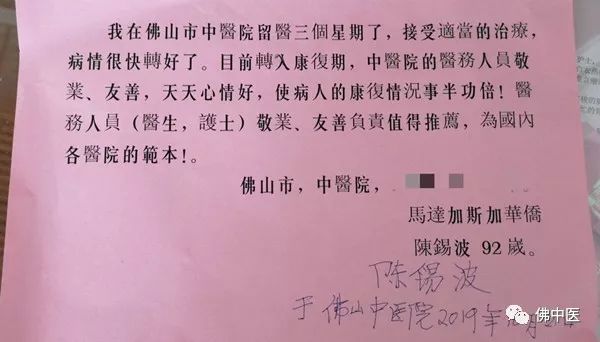 我在佛山市中醫院留醫三個星期了，接受適當的治療，
病情很快轉好了。目前轉入康復期，中醫院的醫務人員敬
業、友善，天天心情好，使病人的康復情況事半功倍！醫
務人員（醫生，護士）敬業、友善負責值得推薦，為國內
各醫院的範本！。
佛山市，中醫院，
馬達加斯加華僑
陳錫波 92歲。
陈錫波
于佛山中医院2019年
佛中医